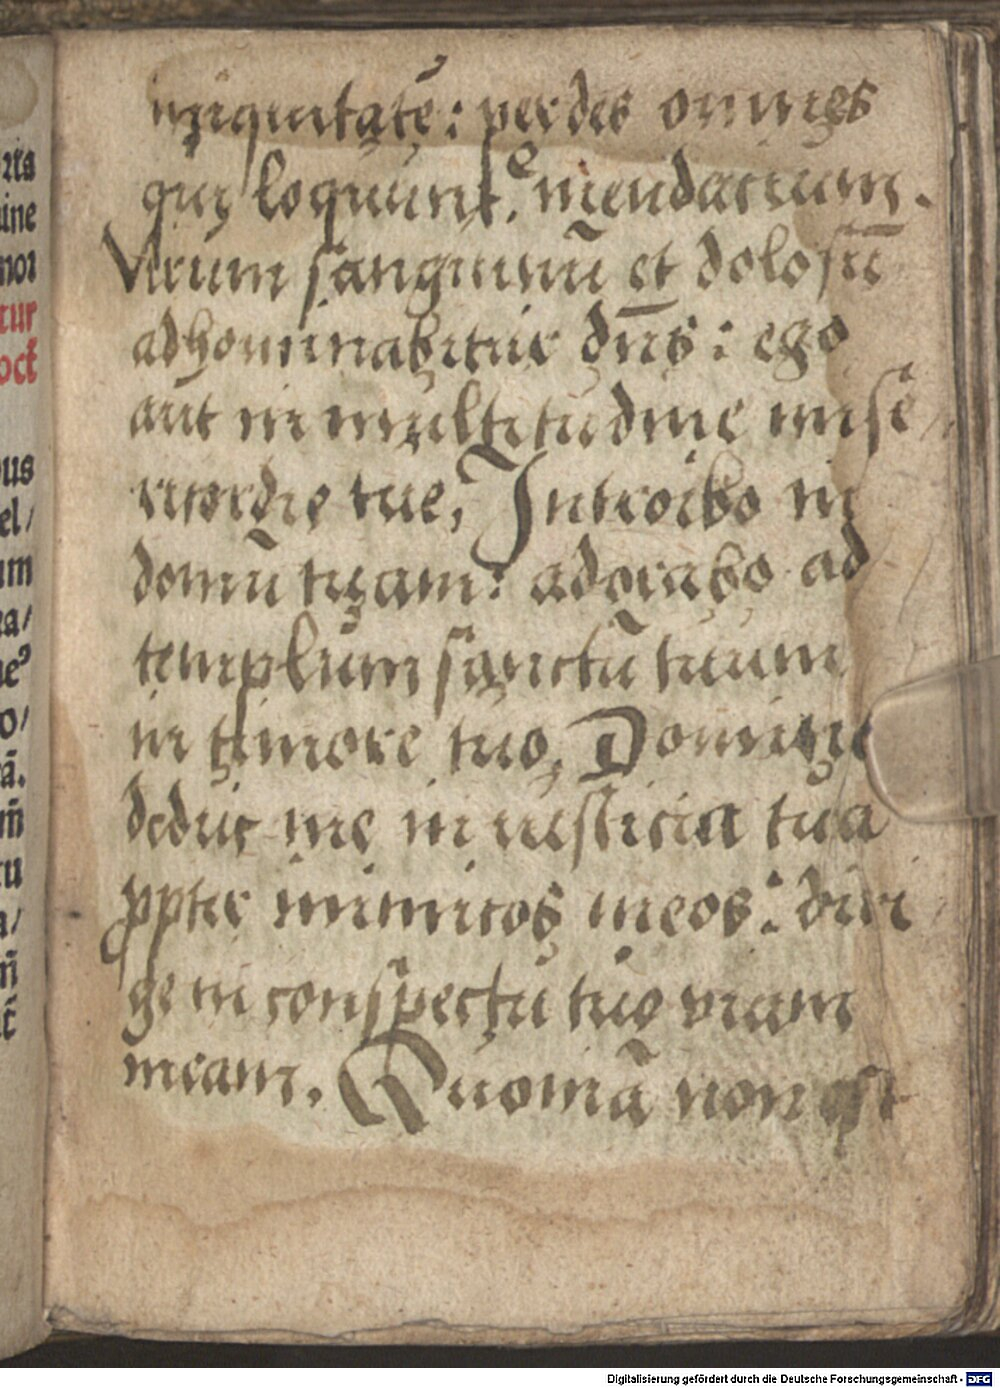 iniquitatē: perdes omnes
qui loquunt͛ mendatium.
Virum sanguinū et dolosū
abhominabitur dn̄s: ego
aūt in multitudine mise
ricordie tue, Introibo in
domū tuam: adorabo ad
templum sanctū tuum
in timore tuo, Domine
deduc me in iusticia tua
ꝓpter inimicos meos: diri
ge in conspectu tuo viam
meam. Quoniā non est
rts
ine
nor
tur
oct̄
ous
el/
um
ra/
ne
o/
rā.
m̄
tu
a/
Digitalisierung gefördert durch die Deutsche Forschungsgemeinschaft - DFG